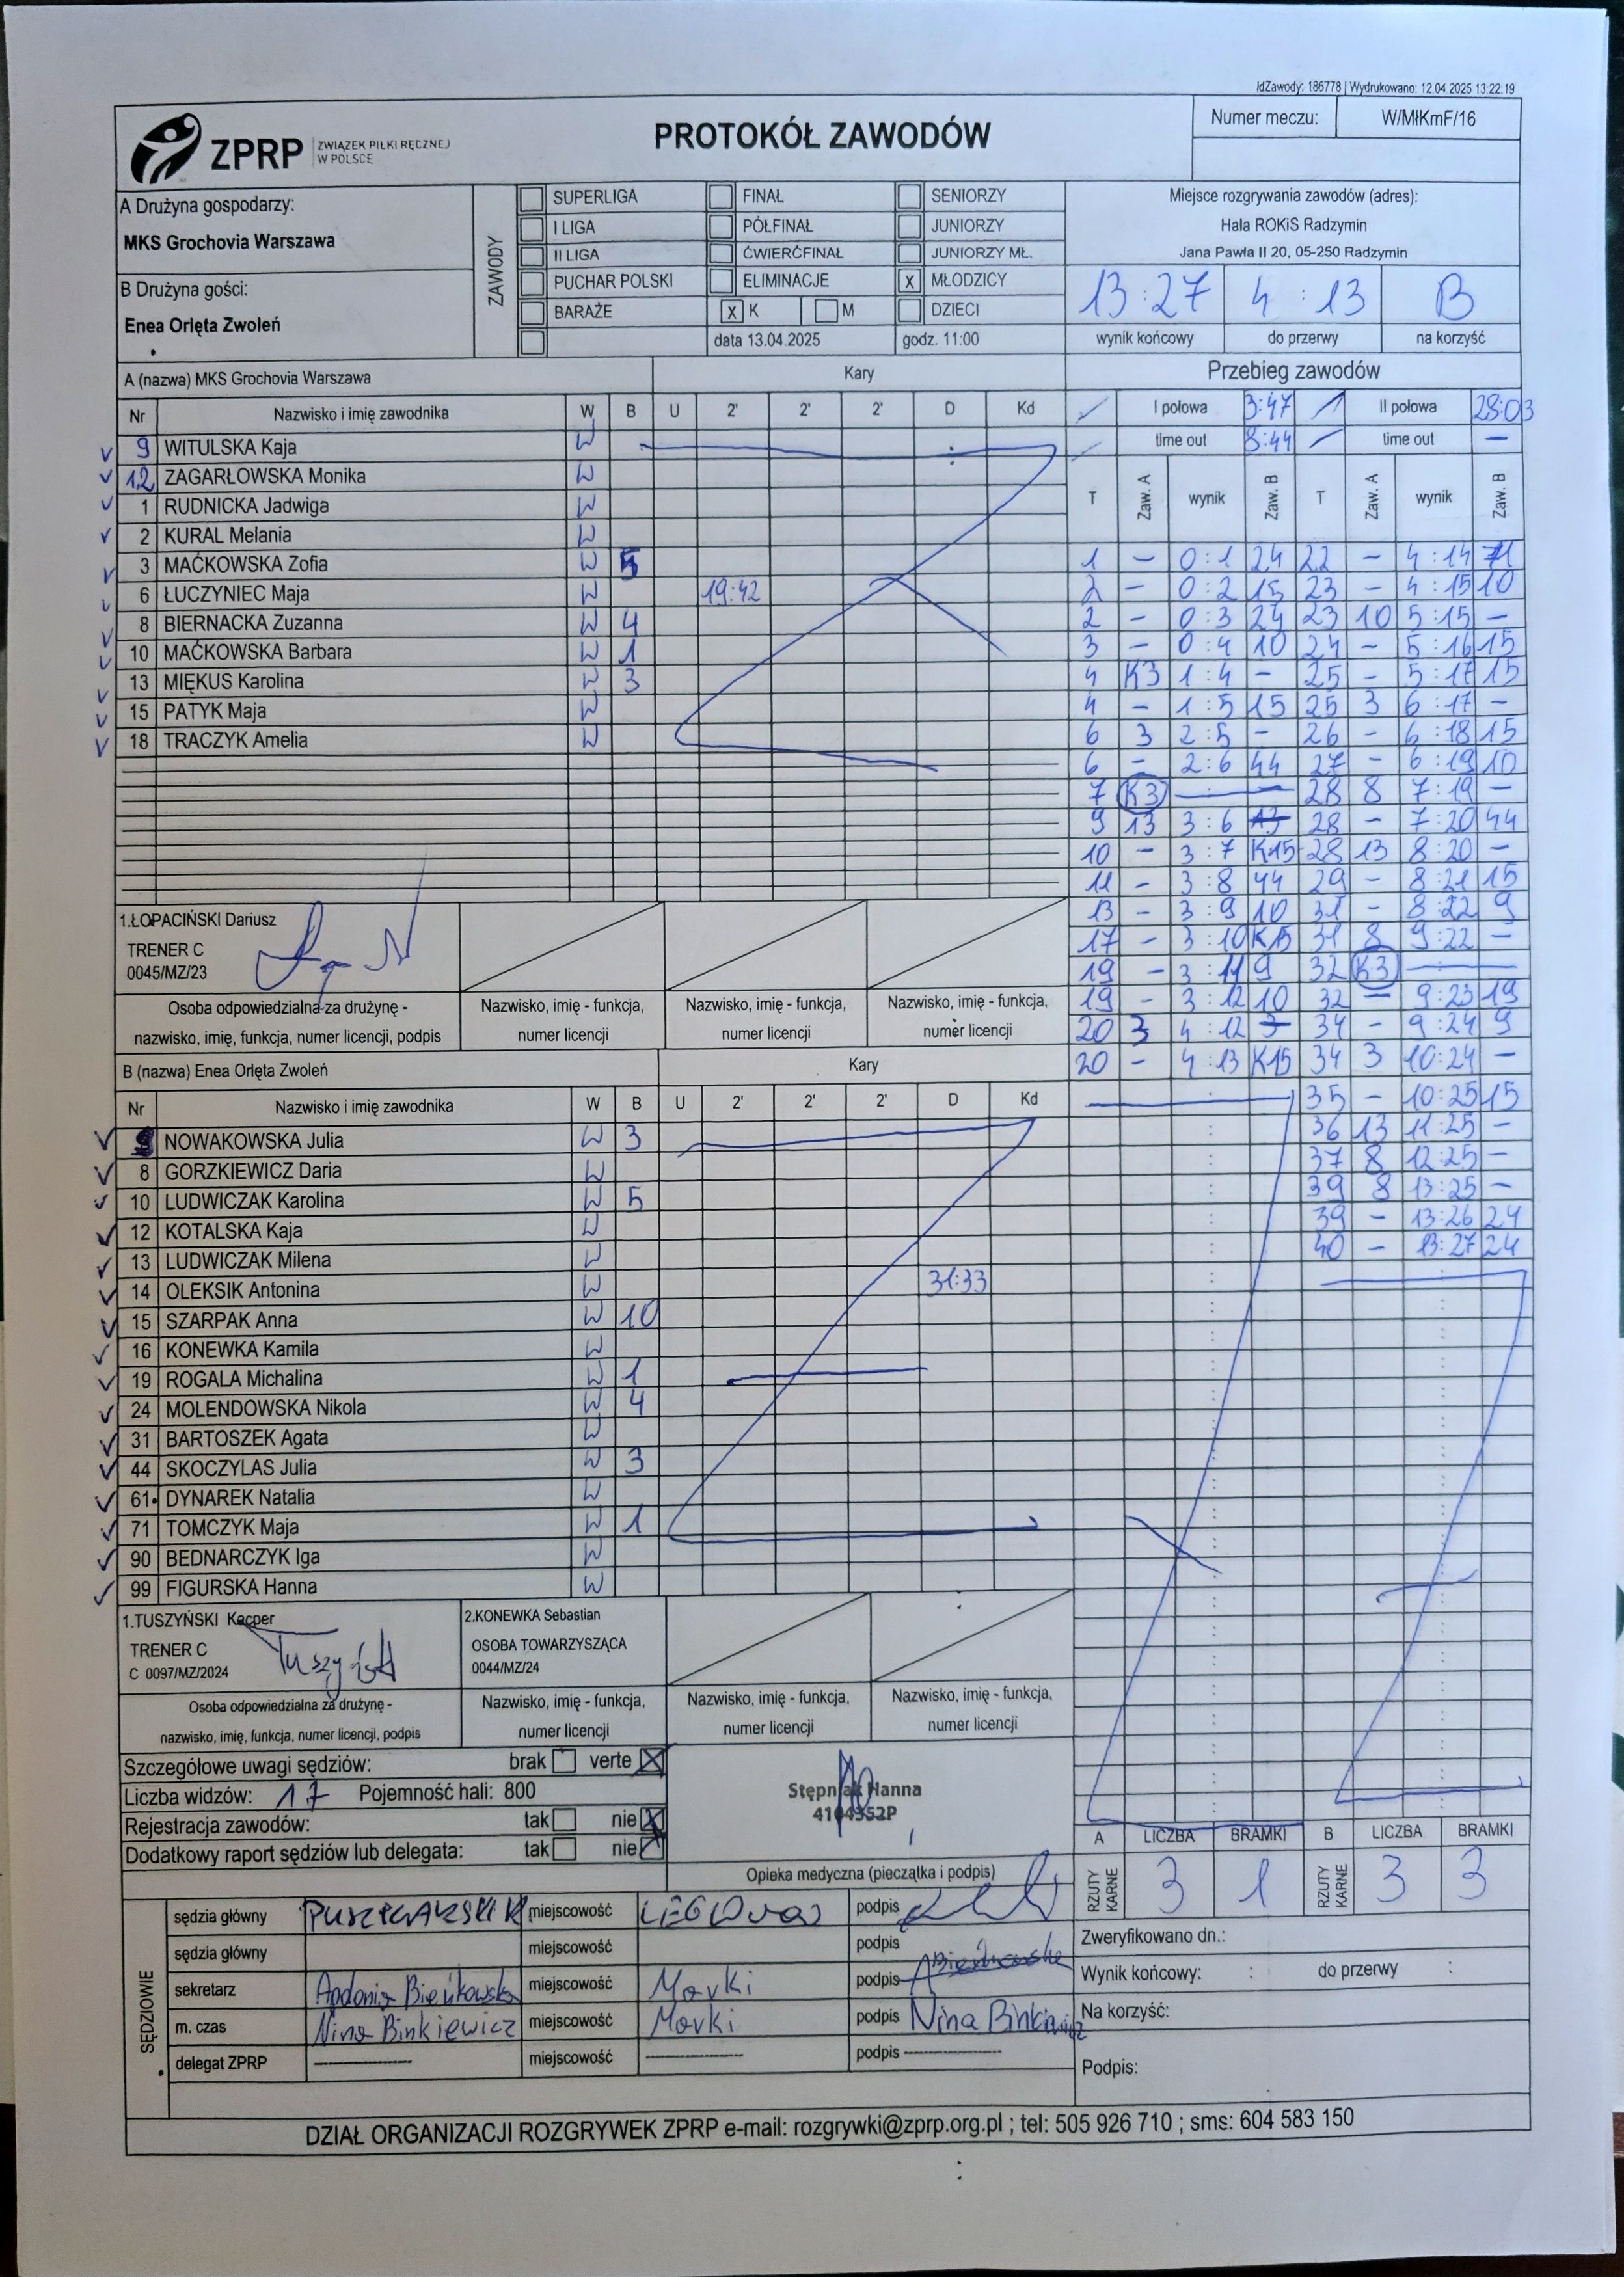 IdZawody: 186778 | Wydrukowano: 12.04.2025 13:22:19
ZPRP ZWIĄZEK PIŁKI RĘCZNEJ W POLSCE
PROTOKÓŁ ZAWODÓW
Numer meczu: W/MłKmF/16
A Drużyna gospodarzy:
MKS Grochovia Warszawa
B Drużyna gości:
Enea Orlęta Zwoleń
ZAWODY
SUPERLIGA FINAŁ SENIORZY
I LIGA PÓŁFINAŁ JUNIORZY
II LIGA ĆWIERĆFINAŁ JUNIORZY MŁ.
PUCHAR POLSKI ELIMINACJE X MŁODZICY
BARAŻE X K M DZIECI
data 13.04.2025 godz. 11:00
Miejsce rozgrywania zawodów (adres):
Hala ROKiS Radzymin
Jana Pawła II 20, 05-250 Radzymin
13:27 4:13 B
wynik końcowy do przerwy na korzyść
A (nazwa) MKS Grochovia Warszawa Kary
Nr Nazwisko i imię zawodnika W B U 2' 2' 2' D Kd
9 WITULSKA Kaja W
12 ZAGARŁOWSKA Monika W
1 RUDNICKA Jadwiga W
2 KURAL Melania W
3 MAĆKOWSKA Zofia W 5
6 ŁUCZYNIEC Maja W 19:42
8 BIERNACKA Zuzanna W 4
10 MAĆKOWSKA Barbara W 1
13 MIĘKUS Karolina W 3
15 PATYK Maja W
18 TRACZYK Amelia W
1.ŁOPACIŃSKI Dariusz
TRENER C
0045/MZ/23
Osoba odpowiedzialna za drużynę - nazwisko, imię, funkcja, numer licencji, podpis
Nazwisko, imię - funkcja, numer licencji
Nazwisko, imię - funkcja, numer licencji
Nazwisko, imię - funkcja, numer licencji
B (nazwa) Enea Orlęta Zwoleń Kary
Nr Nazwisko i imię zawodnika W B U 2' 2' 2' D Kd
NOWAKOWSKA Julia W 3
8 GORZKIEWICZ Daria W
10 LUDWICZAK Karolina W 5
12 KOTALSKA Kaja W
13 LUDWICZAK Milena W
14 OLEKSIK Antonina W 31:33
15 SZARPAK Anna W 10
16 KONEWKA Kamila W
19 ROGALA Michalina W 1
24 MOLENDOWSKA Nikola W 4
31 BARTOSZEK Agata W
44 SKOCZYLAS Julia W 3
61 DYNAREK Natalia W
71 TOMCZYK Maja W 1
90 BEDNARCZYK Iga W
99 FIGURSKA Hanna W
1.TUSZYŃSKI Kacper
TRENER C
C 0097/MZ/2024
2.KONEWKA Sebastian
OSOBA TOWARZYSZĄCA
0044/MZ/24
Osoba odpowiedzialna za drużynę - nazwisko, imię, funkcja, numer licencji, podpis
Nazwisko, imię - funkcja, numer licencji
Nazwisko, imię - funkcja, numer licencji
Nazwisko, imię - funkcja, numer licencji
Przebieg zawodów
I połowa 3:47 II połowa 28:03
time out 8:44 time out —
T Zaw. A wynik Zaw. B T Zaw. A wynik Zaw. B
1 - 0:1 24 22 - 4:14 71
2 - 0:2 15 23 - 4:15 10
2 - 0:3 24 23 10 5:15 -
3 - 0:4 10 24 - 5:16 15
4 K3 1:4 - 25 - 5:17 15
4 - 1:5 15 25 3 6:17 -
6 3 2:5 - 26 - 6:18 15
6 - 2:6 44 27 - 6:19 10
7 K3 — 28 8 7:19 -
9 13 3:6 13 28 - 7:20 44
10 - 3:7 K15 28 13 8:20 -
11 - 3:8 44 29 - 8:21 15
13 - 3:9 10 31 - 8:22 9
17 - 3:10 K15 31 8 9:22 -
19 - 3:11 9 32 K3 —
19 - 3:12 10 32 - 9:23 19
20 3 4:12 34 - 9:24 9
20 - 4:13 K15 34 3 10:24 -
35 - 10:25 15
36 13 11:25 -
37 8 12:25 -
39 8 13:25 -
39 - 13:26 24
40 - 13:27 24
Szczegółowe uwagi sędziów: brak verte X
Liczba widzów: 17 Pojemność hali: 800
Rejestracja zawodów: tak nie X
Dodatkowy raport sędziów lub delegata: tak nie X
Stępniak Hanna
4104352P
Opieka medyczna (pieczątka i podpis)
A LICZBA BRAMKI B LICZBA BRAMKI
RZUTY KARNE 3 1 RZUTY KARNE 3 3
SĘDZIOWIE
sędzia główny miejscowość podpis
sędzia główny miejscowość podpis
sekretarz Apdonia Bieńkowska miejscowość Marki podpis
m. czas Nina Binkiewicz miejscowość Marki podpis Nina Binkiewicz
delegat ZPRP miejscowość podpis
Zweryfikowano dn.:
Wynik końcowy: : do przerwy :
Na korzyść:
Podpis:
DZIAŁ ORGANIZACJI ROZGRYWEK ZPRP e-mail: rozgrywki@zprp.org.pl ; tel: 505 926 710 ; sms: 604 583 150